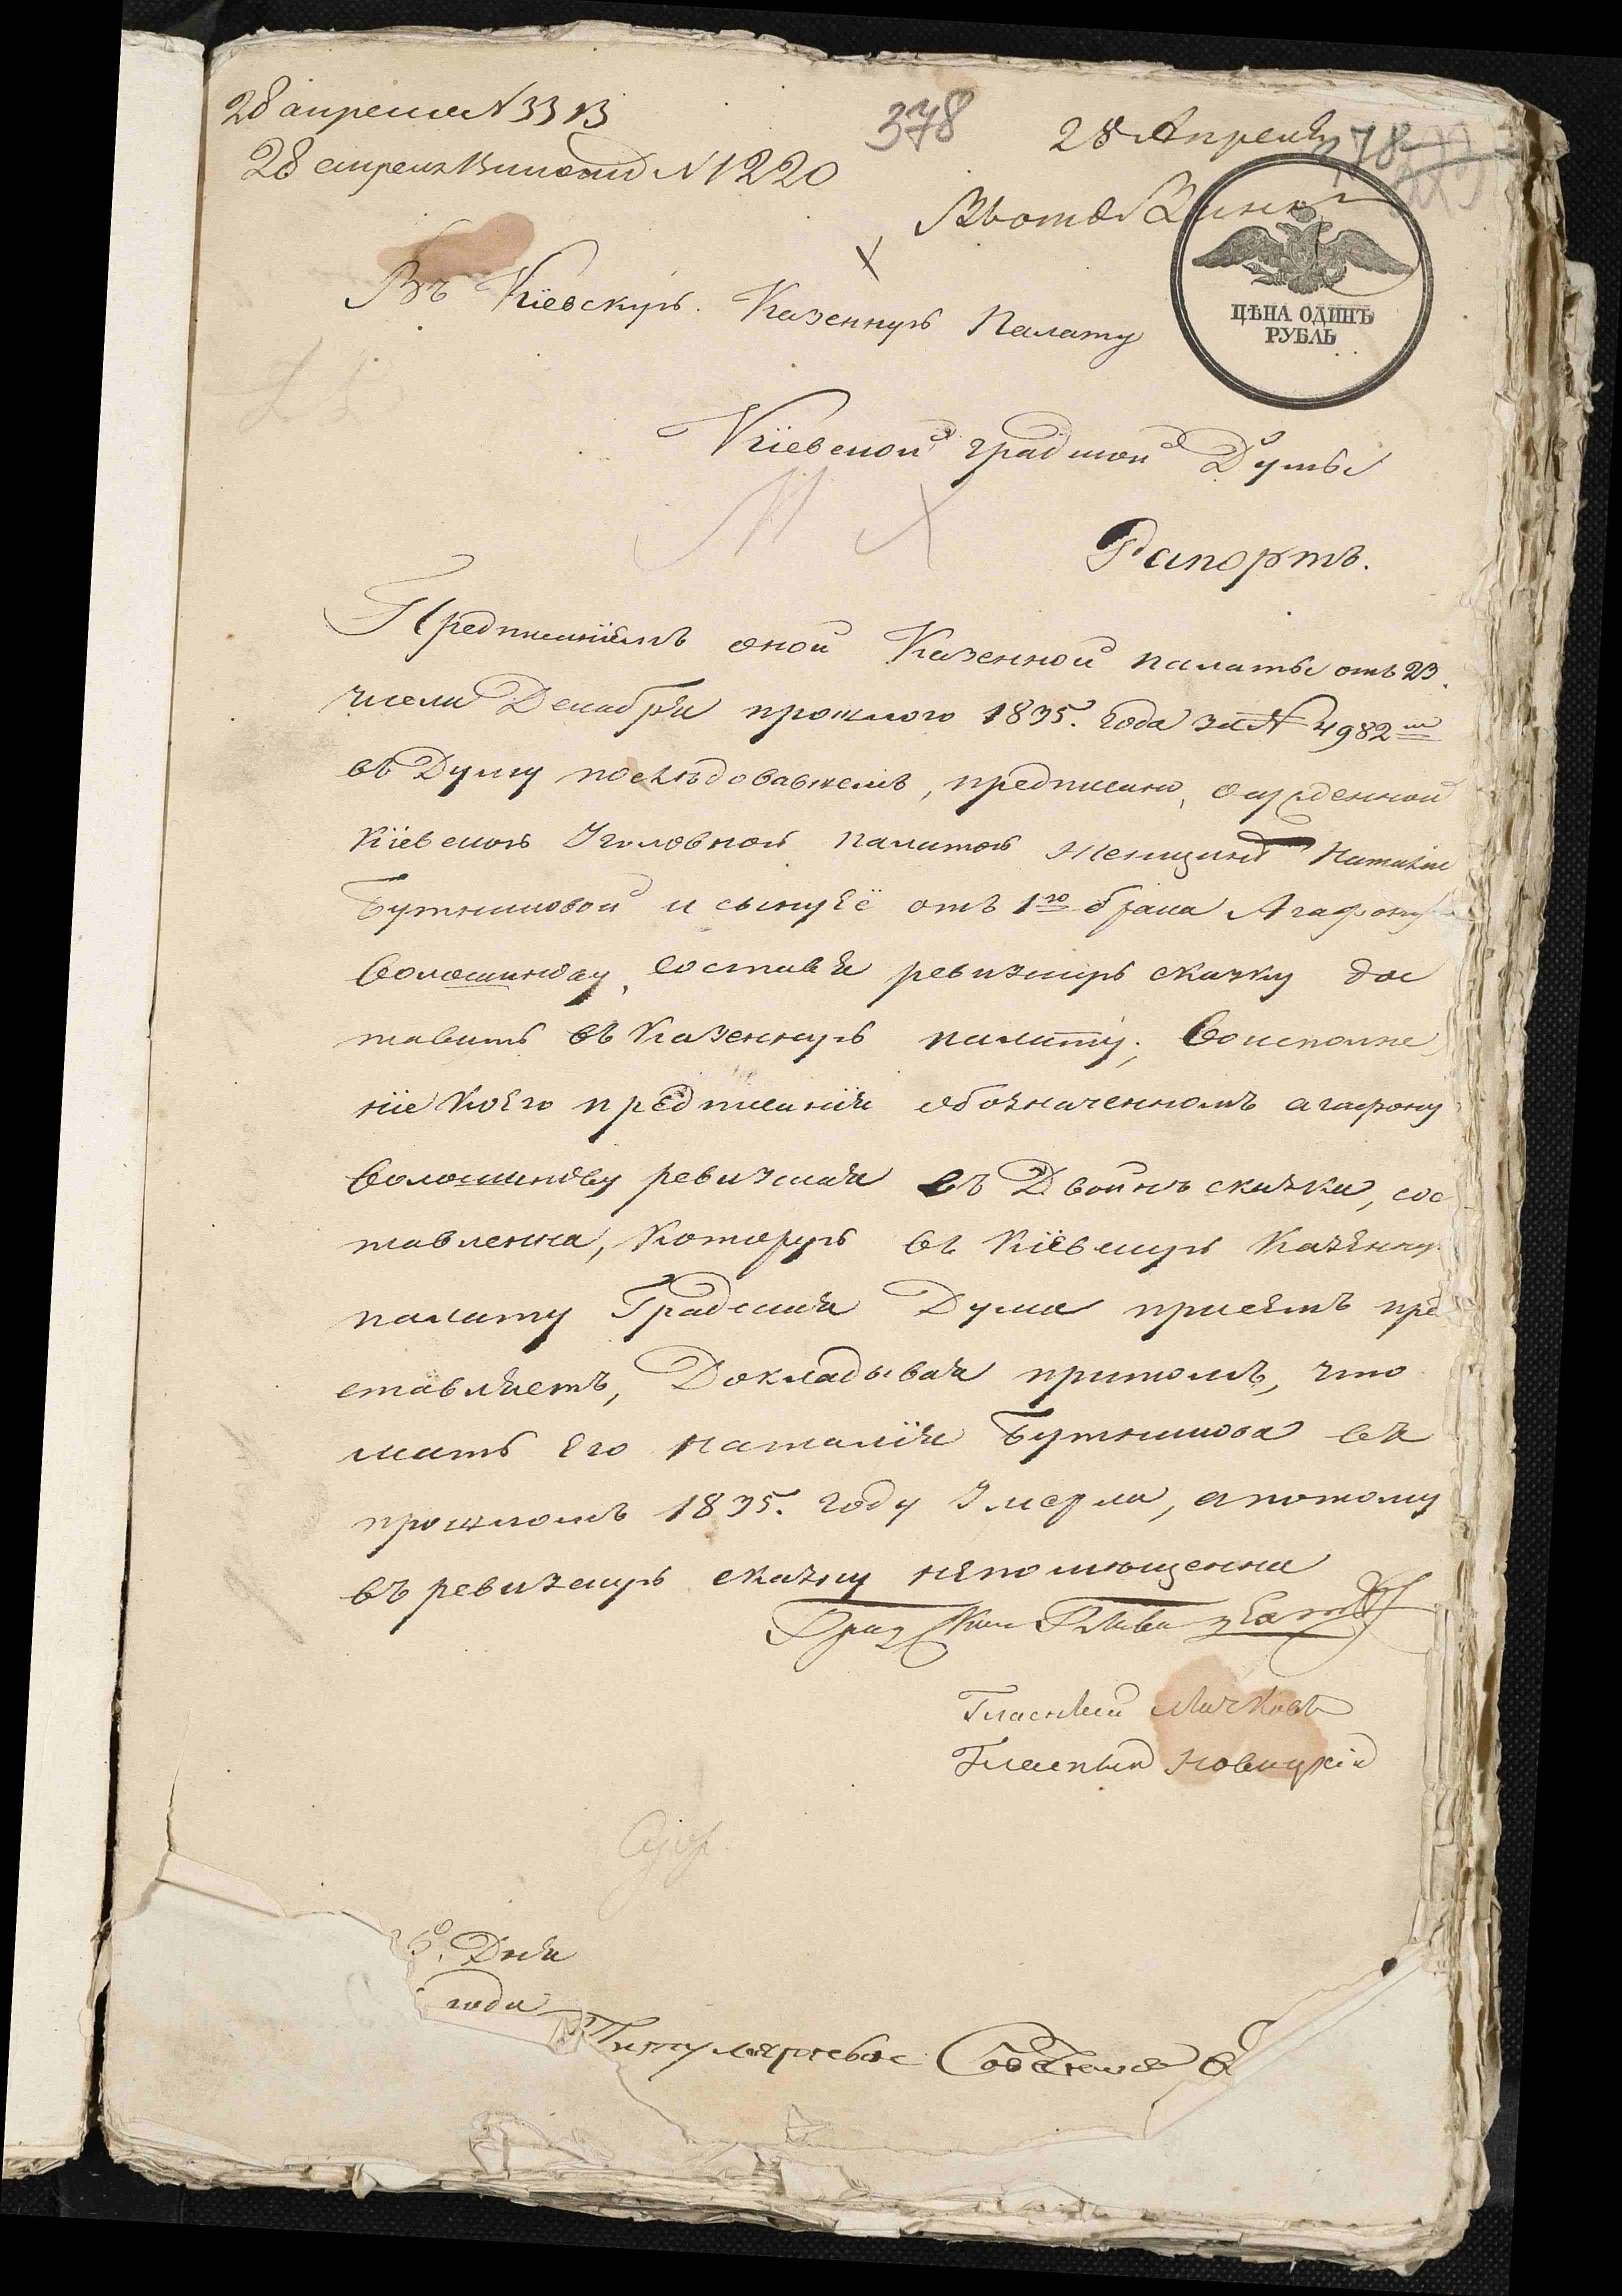 28 апреля N 3313
378
28 Апреля
28 апреля Винном N 1220
ЦѢНА ОДИНЪ
РУБЛЬ
Въ Кіевскую Казенную Палату
Кіевской градской Думы
Рапортъ.
Предписаніемъ оной Казенной палаты отъ 23
числа Декабря прошлого 1835. года за N 4982 м
въ Думу последовавшемъ, предписано, осужденной
Кіевскою Уголовной палатою женщины Наталіи
Бутышовой и сыну её отъ 1го брака Агафону
Волошинову, составя ревизскую сказку дос
тавить въ Казенную палату; Во исполне
ніе коего предписанія обозначенномъ агафону
Волошинову ревизская въ Двойнѣ сказка, сос
тавленна, которую въ Кіевскую Казенну
палату Градская Дума присемъ пред
ставляетъ, Докладывая притомъ, что
мать Его Наталія Бутышова въ
прошломъ 1835. году Умерла, а потому
въ ревизскую сказку непомющенна
Гласный
Гласный Новицкій
Дня
года
Титулярнаго Советника